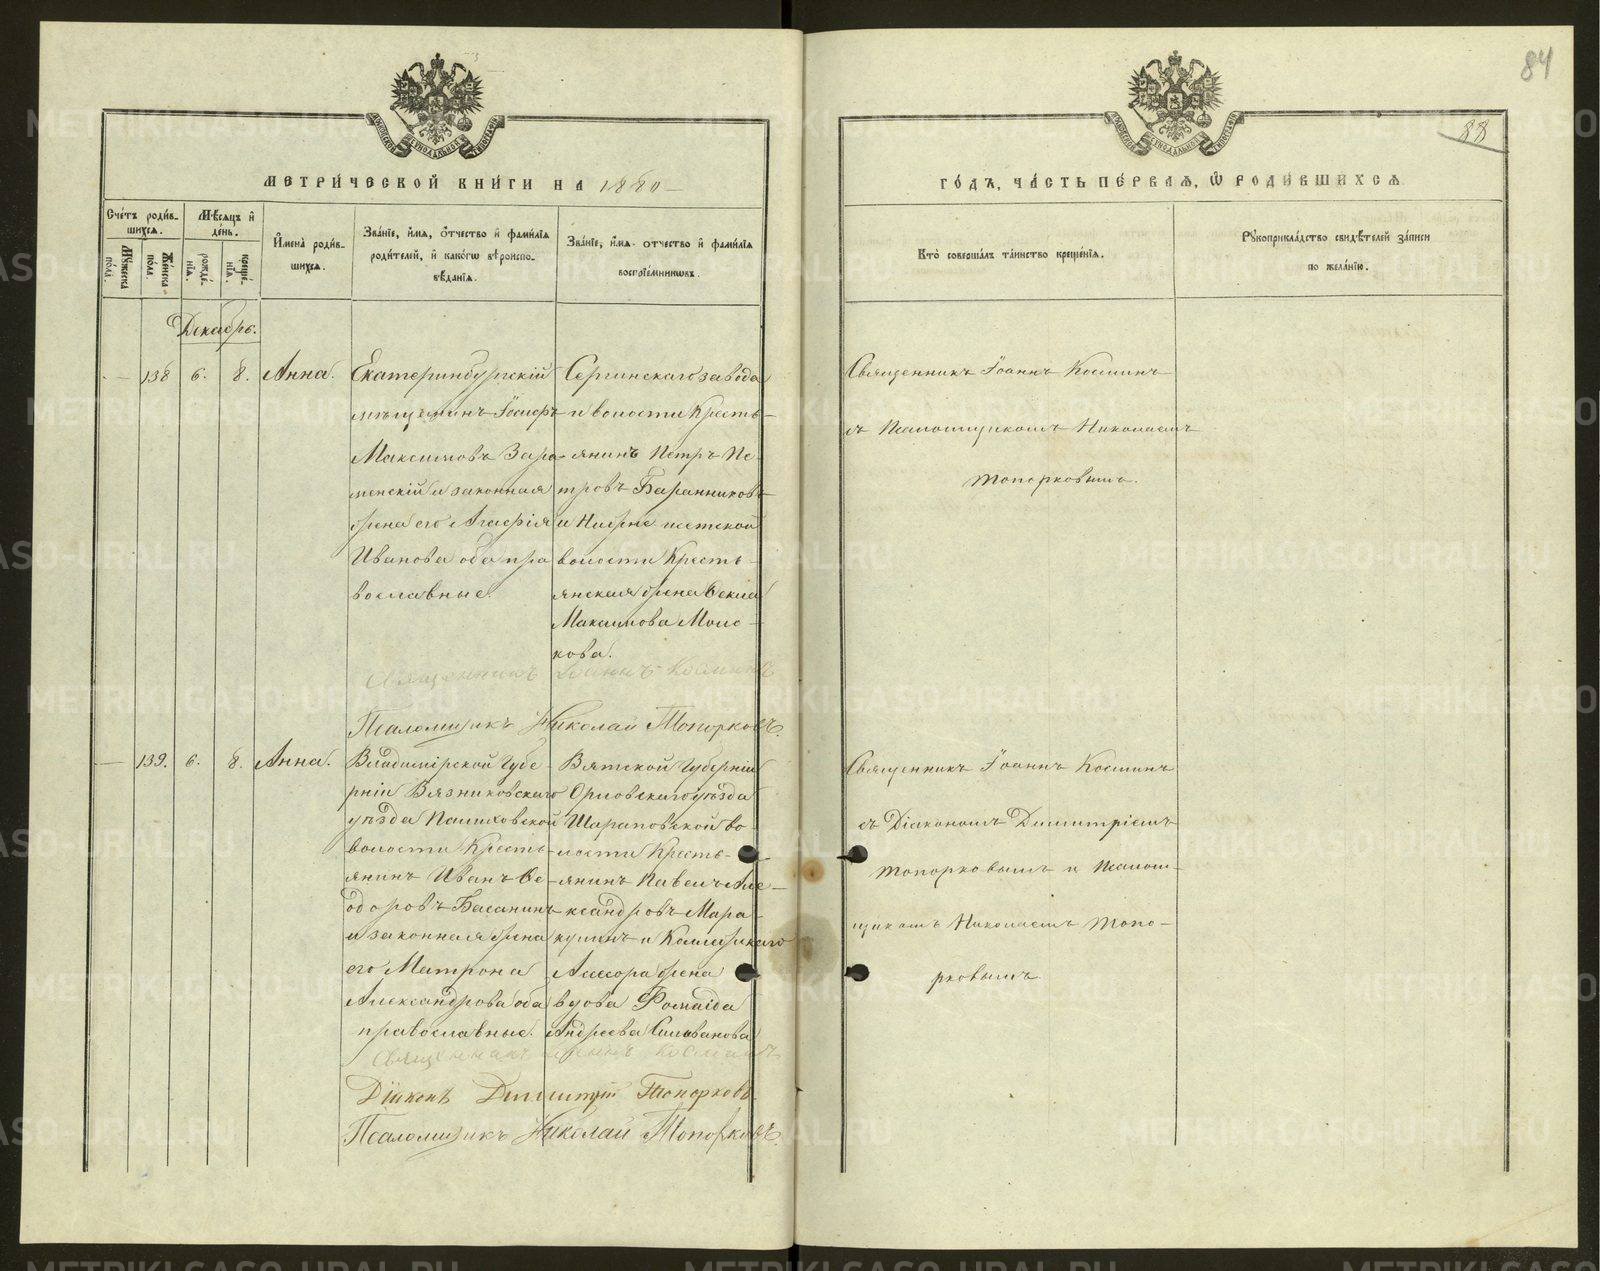 84
88
МЕТРИ́ЧЕСКОЙ КНИ́ГИ НА 1880
ГО́ДЪ, ЧА́СТЬ ПЕ́РВАЯ, Ѡ РОДИ́ВШИХСЯ
Сче́тъ роди́в-
шихся.
Му́жеска по́ла.
Же́нска по́ла.
Мѣ́сяцъ и де́нь.
рожде́-
нїя.
креще́-
нїя.
И҆мена̀ роди́в-
шихся.
Зва́нїе, и҆́мя, о҆́тчество и҆ фами́лїя
роди́телей, и҆ како́гѡ вѣроиспо-
вѣ́данїя.
Зва́нїе, и҆́мя, о҆́тчество и҆ фами́лїя
воспрїе́мниковъ.
Кто̀ соверша́лъ та́инство креще́нїя.
Рукоприкла́дство свидѣ́телей за́писи
по жела́нїю.
Декабрь.
— 138 6. 8. Анна.
Екатеринбургскій
мѣщанинъ Іосифъ
Максимовъ Зара-
менскій и законная
жена его Агафія
Иванова оба пра
вославные.
Сергинскаго завода
и волости Кресть-
янинъ Петръ Пе-
тровъ Баранниковъ
и Нижне исетской
волости Кресть-
янская жена Ѳекла
Максимова Моло-
кова.
Священникъ Іоаннъ Косминъ
Псаломщикъ Николай Топорковъ.
Священникъ Іоаннъ Косминъ
съ Псаломщикомъ Николаемъ
Топорковымъ.
— 139. 6. 8. Анна.
Владимірской Губе-
рніи Вязниковскаго
уѣзда Палиховской
волости Кресть-
янинъ Иванъ Ѳе-
доровъ Басанинъ
и законная жена
его Матрона
Александрова оба
православные.
Вятской Губерніи
Орловскаго уѣзда
Шараповской во-
лости Кресть-
янинъ Павелъ Але-
ксандровъ Мара-
кулинъ и Коллежскаго
Ассесора жена
вдова Фомаида
Андреева Силованова
Священникъ Іоаннъ Косминъ
Діаконъ Димитрій Топорковъ.
Псаломщикъ Николай Топорковъ.
Священникъ Іоаннъ Косминъ
съ Діакономъ Димитріемъ
Топорковымъ и Псалом-
щикомъ Николаемъ Топо-
рковымъ.
METRIKI.GASO-URAL.RU